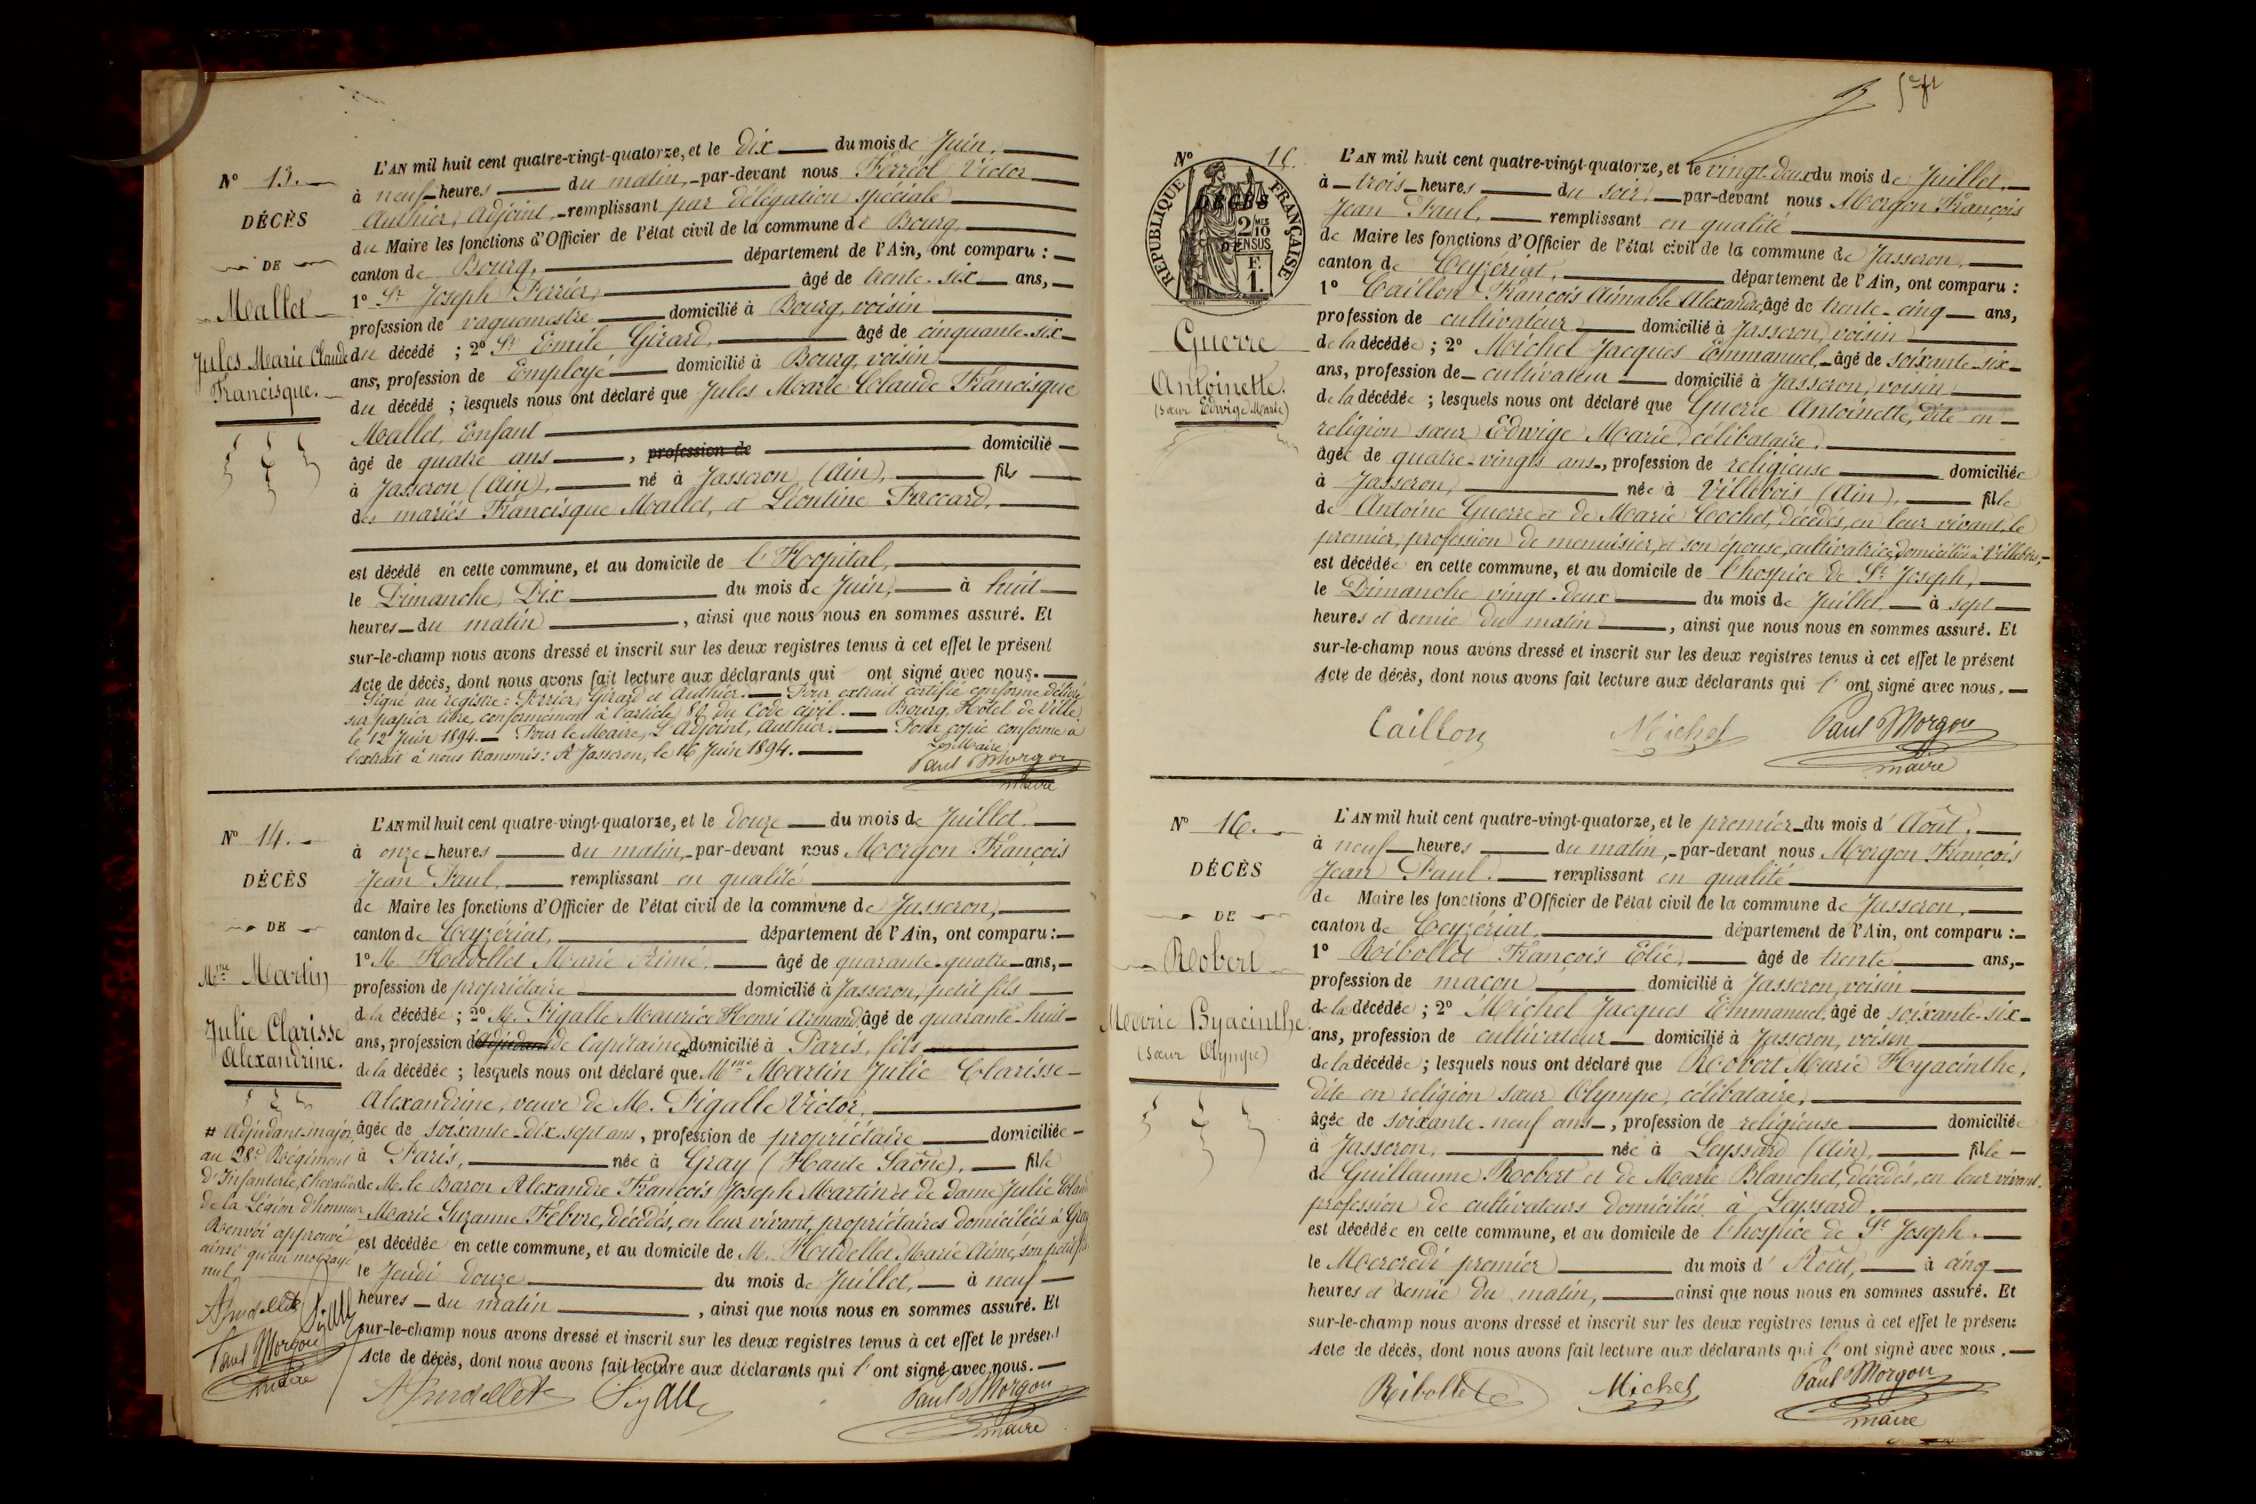 N° 13.
DÉCÈS
DE
Mallet
Jules Marie Claude
Francisque.
L'AN mil huit cent quatre-vingt-quatorze, et le Dix du mois de Juin,
à neuf heures du matin, par-devant nous Ferréol Victor
Authier, Adjoint, remplissant par délégation spéciale
du Maire les fonctions d'Officier de l'état civil de la commune de Bourg,
canton de Bourg, département de l'Ain, ont comparu :
1° Sr Joseph Ferrier, âgé de trente-six ans,
profession de vaguemestre domicilié à Bourg, voisin
du décédé ; 2° Sr Emile Girard, âgé de cinquante-six
ans, profession de Employé domicilié à Bourg, voisin
du décédé ; lesquels nous ont déclaré que Jules Marie Claude Francisque
Mallet, Enfant
âgé de quatre ans, profession de domicilié
à Jasseron (Ain), né à Jasseron (Ain), fils
des mariés Francisque Mallet, et Léontine
est décédé en cette commune, et au domicile de l'Hopital,
le Dimanche, Dix du mois de Juin, à huit
heures du matin, ainsi que nous nous en sommes assuré. Et
sur-le-champ nous avons dressé et inscrit sur les deux registres tenus à cet effet le présent
Acte de décès, dont nous avons fait lecture aux déclarants qui ont signé avec nous.
Signé au registre : Ferrier, Girard et Authier. Pour extrait certifié conforme délivré
sur papier libre, conformément à l'article 80 du Code civil. Bourg, Hôtel de Ville,
le 12 Juin 1894. Pour le Maire, L'Adjoint, Authier. Pour copie conforme à
l'extrait à nous transmis : A Jasseron, le 16 Juin 1894.
Le Maire,
Paul Morgon
maire
N° 14.
DÉCÈS
DE
Mme Martin
Julie Clarisse
Alexandrine.
L'AN mil huit cent quatre-vingt-quatorze, et le douze du mois de Juillet.
à onze heures du matin, par-devant nous Morgon François
Jean Paul, remplissant en qualité
de Maire les fonctions d'Officier de l'état civil de la commune de Jasseron,
canton de Ceyzériat, département de l'Ain, ont comparu :
1° M. Houdellet Marie Aimé, âgé de quarante-quatre ans,
profession de propriétaire domicilié à Jasseron, petit fils
de la décédée ; 2° M. Figalle Maurice Henri Armand, âgé de quarante-huit
ans, profession de Capitaine # domicilié à Paris, fils
de la décédée ; lesquels nous ont déclaré que Mme Martin Julie Clarisse
Alexandrine, veuve de M. Figalle Victor,
âgée de soixante-dix-sept ans, profession de propriétaire domiciliée
à Paris, née à Gray (Haute Saône), fille
de M. le Baron Alexandre François Joseph Martin et de dame Julie
Marie Suzanne Febvre, décédés, en leur vivant, propriétaires domiciliés à Gray
est décédée en cette commune, et au domicile de M. Houdellet Marie Aimé, son petit fils
le Jeudi douze du mois de Juillet, à neuf
heures du matin, ainsi que nous nous en sommes assuré. Et
sur-le-champ nous avons dressé et inscrit sur les deux registres tenus à cet effet le présent
Acte de décès, dont nous avons fait lecture aux déclarants qui l'ont signé avec nous.
# Adjudant-major
au 28e Régiment
d'Infanterie, Chevalier
de la Légion d'honneur
Renvoi approuvé
ainsi qu'un mot rayé
nul
AHoudellet
Figalle
Paul Morgon
maire
AHoudellet Figalle Paul Morgon
maire
N° 15.
RÉPUBLIQUE FRANÇAISE
2/10 MES
EN SUS
F.
1.
DÉCÈS
DE
Guerre
Antoinette.
(sœur Edwige Marie)
L'AN mil huit cent quatre-vingt-quatorze, et le vingt-deux du mois de Juillet.
à trois heures du soir, par-devant nous Morgon François
Jean Paul, remplissant en qualité
de Maire les fonctions d'Officier de l'état civil de la commune de Jasseron,
canton de Ceyzériat, département de l'Ain, ont comparu :
1° Caillon François Aimable Alexandre, âgé de trente-cinq ans,
profession de cultivateur domicilié à Jasseron, voisin
de la décédée ; 2° Michel Jacques Emmanuel, âgé de soixante-six
ans, profession de cultivateur domicilié à Jasseron, voisin
de la décédée ; lesquels nous ont déclaré que Guerre Antoinette, dite en
religion sœur Edwige Marie, célibataire,
âgée de quatre-vingts ans, profession de religieuse domiciliée
à Jasseron, née à Villebois (Ain), fille
de Antoine Guerre et de Marie Cochet, décédés, en leur vivant, le
premier, profession de menuisier, et son épouse, cultivatrice, domiciliés à Villebois,
est décédée en cette commune, et au domicile de l'hospice de St Joseph,
le Dimanche vingt-deux du mois de Juillet à sept
heures et demie du matin, ainsi que nous nous en sommes assuré. Et
sur-le-champ nous avons dressé et inscrit sur les deux registres tenus à cet effet le présent
Acte de décès, dont nous avons fait lecture aux déclarants qui l'ont signé avec nous.
Caillon Michel Paul Morgon
maire
N° 16.
DÉCÈS
DE
Robert
Marie Hyacinthe.
(sœur Olympe)
L'AN mil huit cent quatre-vingt-quatorze, et le premier du mois d'Août,
à neuf heures du matin, par-devant nous Morgon François
Jean Paul. remplissant en qualité
de Maire les fonctions d'Officier de l'état civil de la commune de Jasseron,
canton de Ceyzériat, département de l'Ain, ont comparu :
1° Ribollet François Elie, âgé de trente ans,
profession de maçon domicilié à Jasseron, voisin
de la décédée ; 2° Michel Jacques Emmanuel, âgé de soixante-six
ans, profession de cultivateur domicilié à Jasseron, voisin
de la décédée ; lesquels nous ont déclaré que Robert Marie Hyacinthe,
dite en religion sœur Olympe, célibataire,
âgée de soixante-neuf ans, profession de religieuse domiciliée
à Jasseron, née à Leyssard (Ain), fille
de Guillaume Robert et de Marie Blanchet, décédés, en leur vivant,
profession de cultivateurs domiciliés à Leyssard.
est décédée en cette commune, et au domicile de l'hospice de St Joseph.
le Mercredi premier du mois d'Août, à cinq
heures et demie du matin, ainsi que nous nous en sommes assuré. Et
sur-le-champ nous avons dressé et inscrit sur les deux registres tenus à cet effet le présent
Acte de décès, dont nous avons fait lecture aux déclarants qui l'ont signé avec nous.
Ribollet Michel Paul Morgon
maire